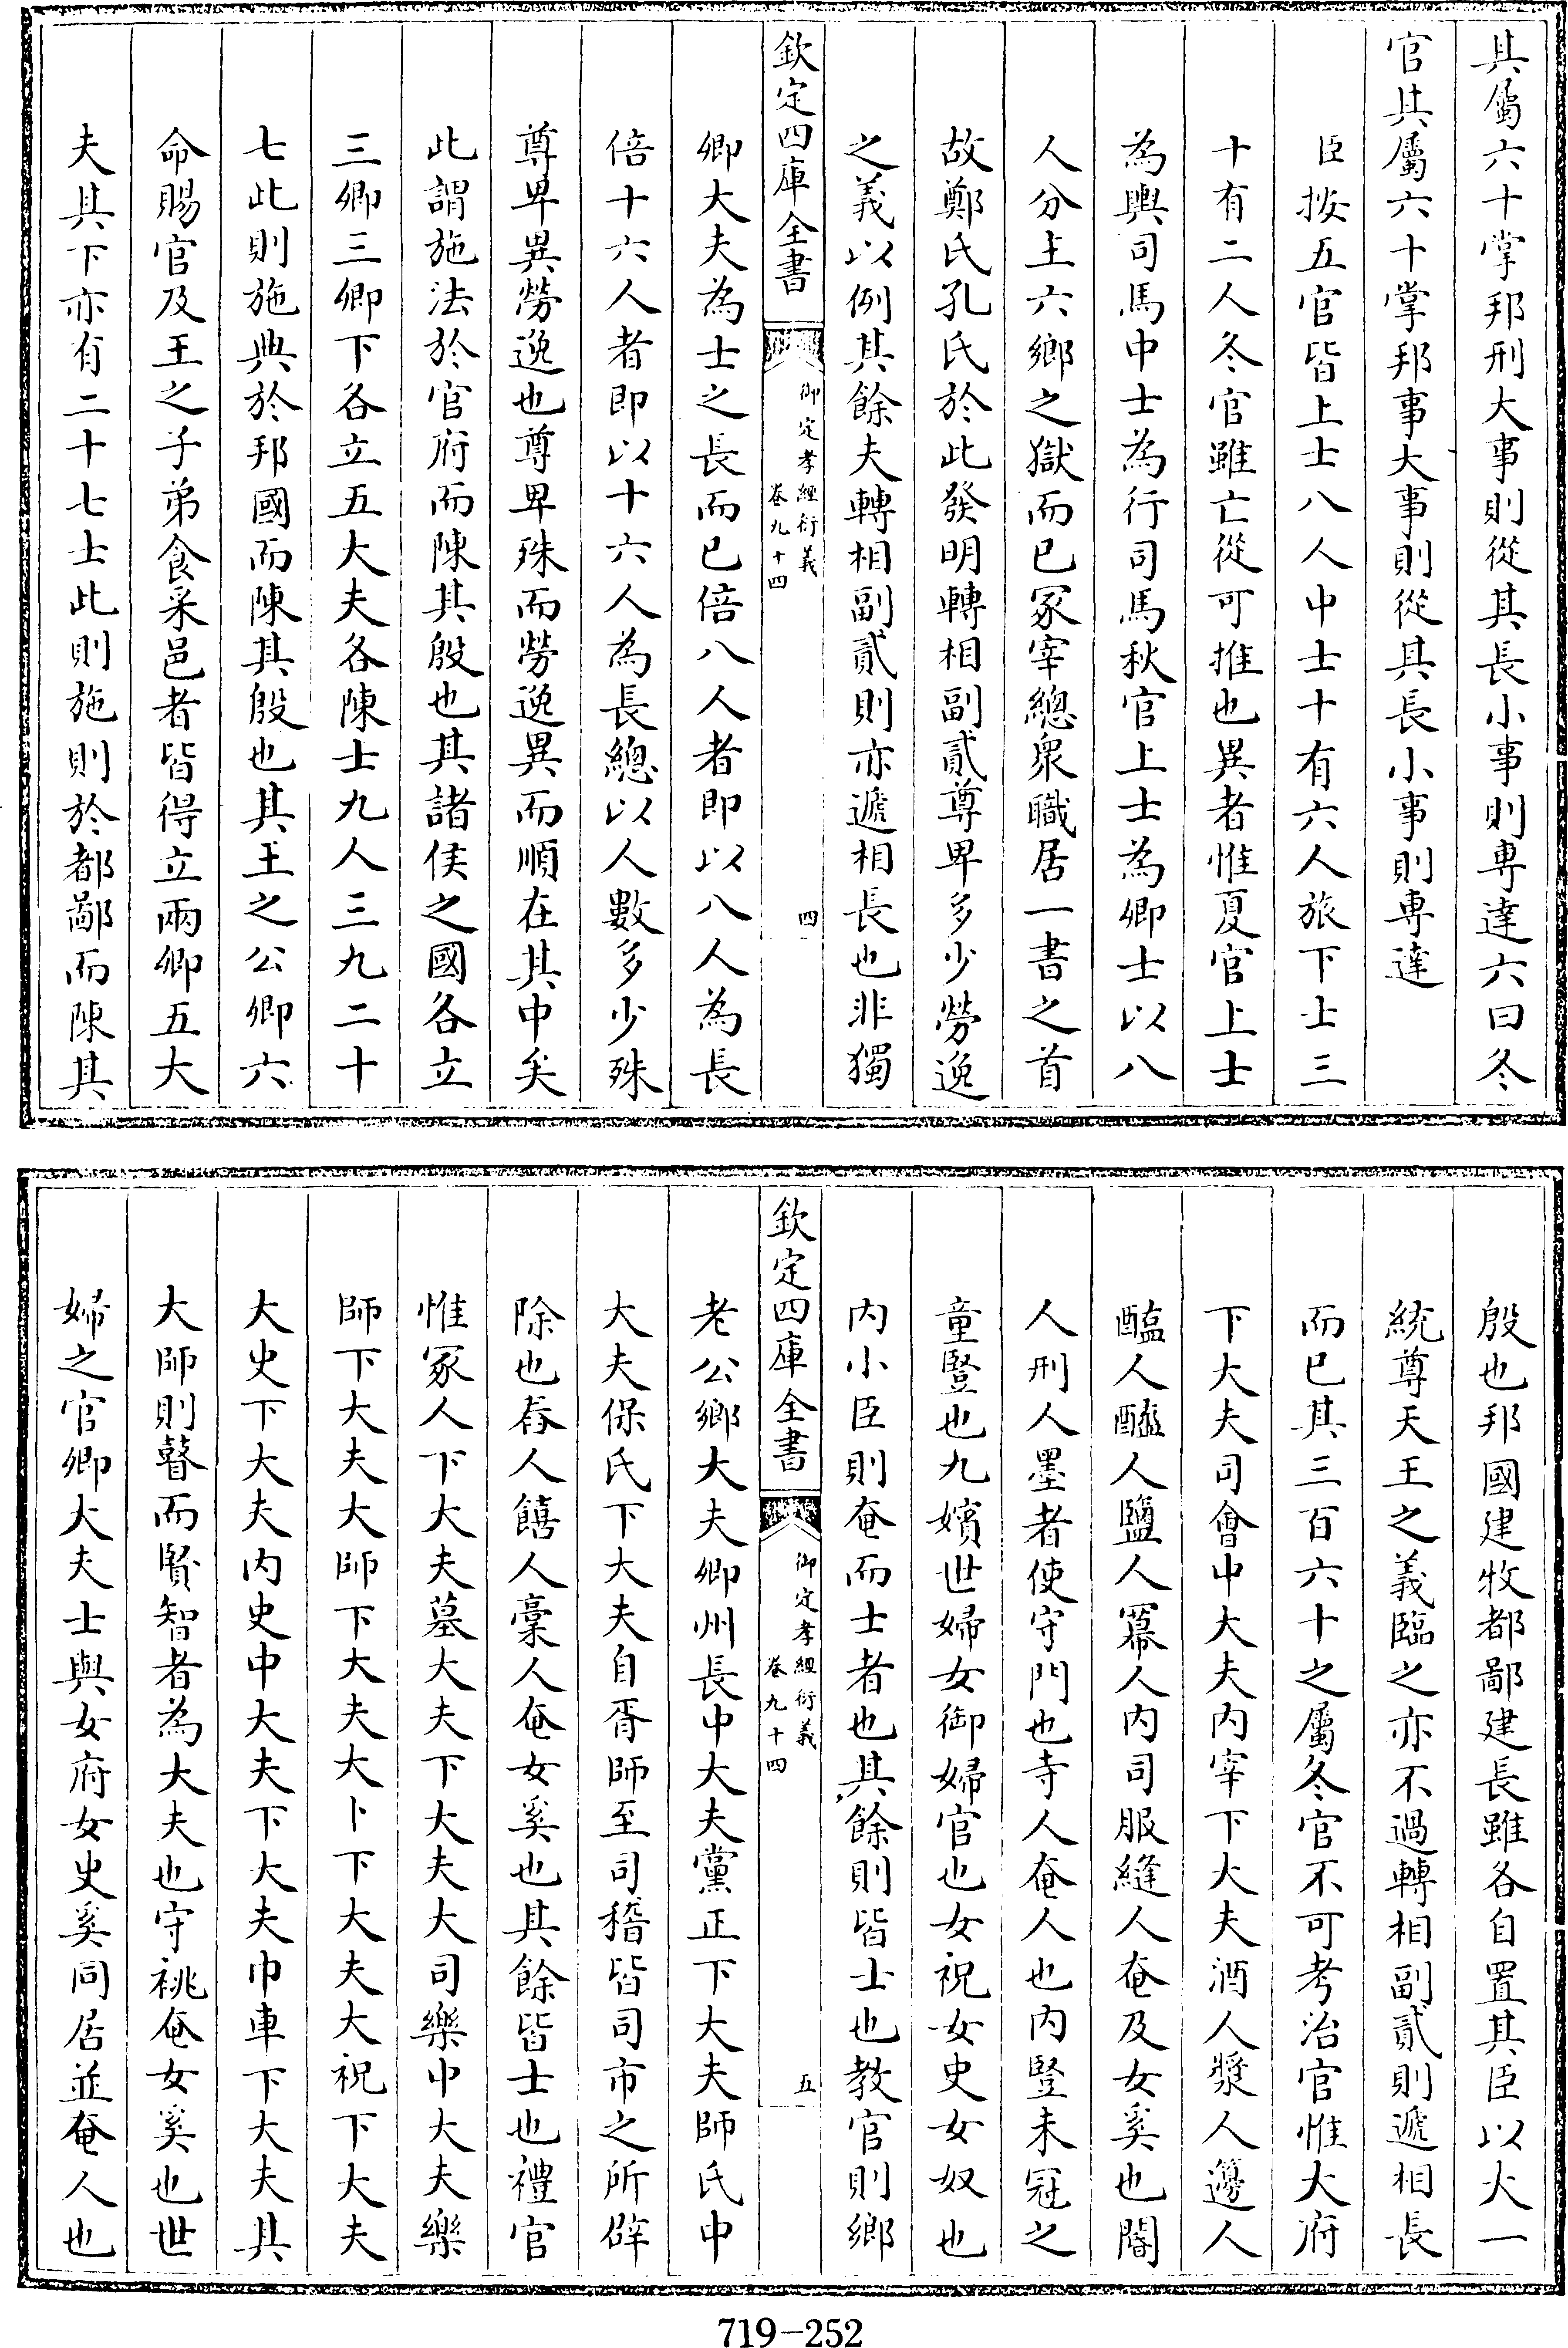 其屬六十掌邦刑大事則從其長小事則専達六曰冬
官其屬六十掌邦事大事則從其長小事則専達
臣按五官皆上士八人中士十有六人旅下士三
十有二人冬官雖亡從可推也異者惟夏官上士
為輿司馬中士為行司馬秋官上士為卿士以八
人分主六鄉之獄而已冢宰總衆職居一書之首
故鄭氏孔氏於此發明轉相副貳尊卑多少勞逸
之義以例其餘夫轉相副貳則亦遞相長也非獨
欽定四庫全書
御定孝經衍義
卷九十四
四
卿大夫為士之長而已倍八人者即以八人為長
倍十六人者即以十六人為長總以人數多少殊
尊卑異勞逸也尊卑殊而勞逸異而順在其中矣
此謂施法於官府而陳其殷也其諸侯之國各立
三卿三卿下各立五大夫各陳士九人三九二十
七此則施典於邦國而陳其殷也其王之公卿六
命賜官及王之子弟食采邑者皆得立兩卿五大
夫其下亦有二十七士此則施則於都鄙而陳其
殷也邦國建牧都鄙建長雖各自置其臣以大一
統尊天王之義臨之亦不過轉相副貳則遞相長
而已其三百六十之屬冬官不可考治官惟大府
下大夫司會中大夫内宰下大夫酒人漿人籩人
醢人醯人鹽人冪人内司服縫人奄及女奚也閽
人刑人墨者使守門也寺人奄人也内豎未冠之
童豎也九嬪世婦女御婦官也女祝女史女奴也
内小臣則奄而士者也其餘則皆士也教官則鄉
欽定四庫全書
御定孝經衍義
卷九十四
五
老公鄉大夫卿州長中大夫黨正下大夫師氏中
大夫保氏下大夫自胥師至司稽皆司市之所辟
除也舂人饎人稾人奄女奚也其餘皆士也禮官
惟冢人下大夫墓大夫下大夫大司樂中大夫樂
師下大夫大師下大夫大卜下大夫大祝下大夫
大史下大夫内史中大夫下大夫巾車下大夫其
大師則瞽而賢智者為大夫也守祧奄女奚也世
婦之官卿大夫士與女府女史奚同居並奄人也
719-252